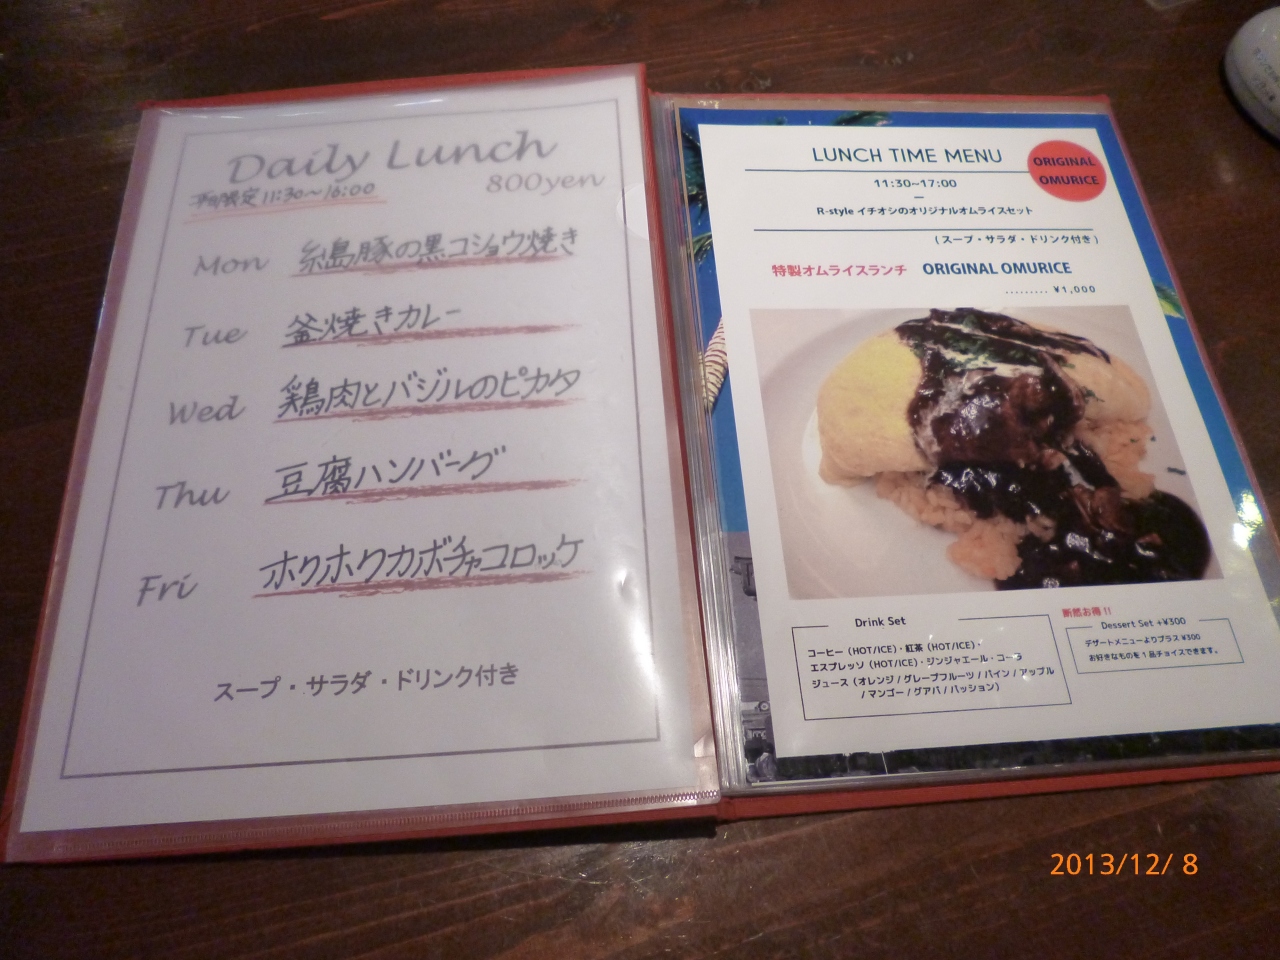 Daily Lunch
平日限定 11:30～16:00
800yen
Mon 糸島豚の黒コショウ焼き
Tue 釜焼きカレー
Wed 鶏肉とバジルのピカタ
Thu 豆腐ハンバーグ
Fri ホクホクカボチャコロッケ
スープ・サラダ・ドリンク付き
LUNCH TIME MENU
ORIGINAL
OMURICE
11:30~17:00
R-style イチオシのオリジナルオムライスセット
(スープ・サラダ・ドリンク付き)
特製オムライスランチ ORIGINAL OMURICE
......... ¥1,000
Drink Set
コーヒー (HOT/ICE)・紅茶 (HOT/ICE)・
エスプレッソ (HOT/ICE)・ジンジャエール・コーラ
ジュース (オレンジ / グレープフルーツ / パイン / アップル
/ マンゴー / グアバ / パッション)
断然お得!!
Dessert Set +¥300
デザートメニューよりプラス ¥300
お好きなものを 1 品チョイスできます。
2013/12/ 8